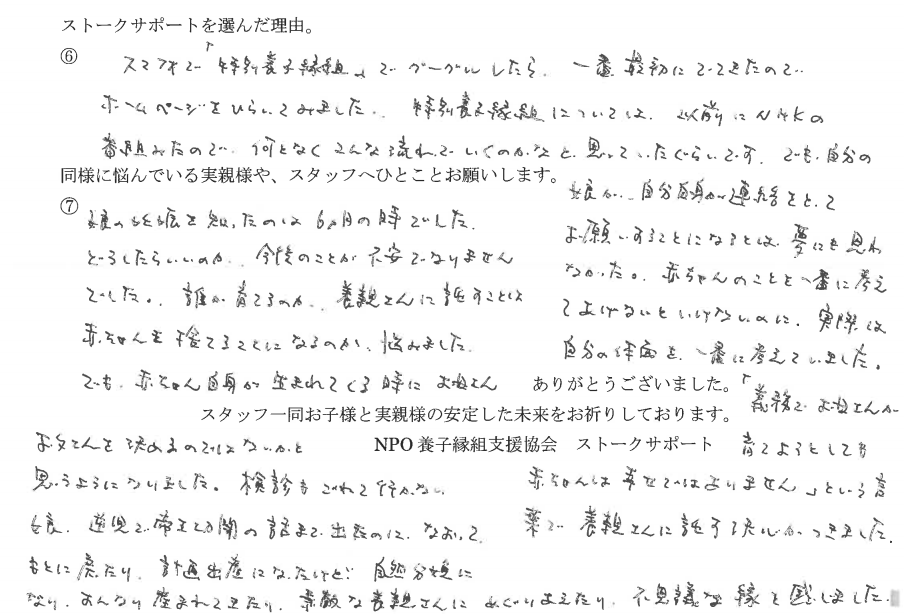 ストークサポートを選んだ理由。
⑥ スマフォで「特別養子縁組」でグーグルしたら、一番最初にでてきたので
ホームページをひらいてみました。特別養子縁組については、以前にNHKの
番組みたので、何となくこんな流れでいくのかなと思っていたぐらいです。でも、自分の
娘が、自分自身が連絡をとって
お願いすることになるとは夢にも思わ
なかった。赤ちゃんのことを一番に考え
てあげないといけないのに、実際は
自分の体面を、一番に考えていました。
同様に悩んでいる実親様や、スタッフへひとことお願いします。
⑦ 娘の妊娠を知ったのは6ヵ月の時でした。
どうしたらいいのか、今後のことが不安でなりません
でした。誰が育てるのか、養親さんに託すことは
赤ちゃんを捨てることになるのか、悩みました。
でも、赤ちゃん自身が生まれてくる時にお母さん
お父さんを決めるのではないかと
思うようになりました。検診もつれて行かない
娘、逆児で帝王切開の話まで出たのに、なおって
もとに戻たり、計画出産になったけど、自然分娩に
なり、すんなり産まれてきたり、素敵な養親さんにめぐりあえたり、不思議な縁を感じました。
「義務でお母さんが
育てようとしても
赤ちゃんは幸せではありません」という言
葉で、養親さんに託す決心がつきました。
ありがとうございました。
スタッフ一同お子様と実親様の安定した未来をお祈りしております。
NPO 養子縁組支援協会 ストークサポート